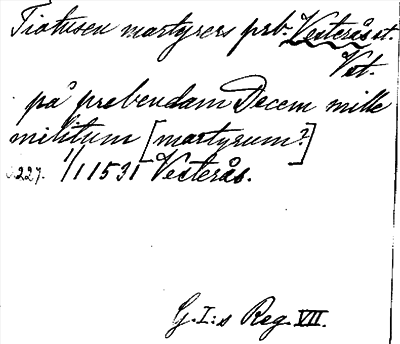 Tiotusen martyrers prb. Vesterås st.
Vit.
på prebendam Decem mille
militum [martyrum?]
s. 227. 1/1 1531 Vesterås.
G. I:s Reg. VII.